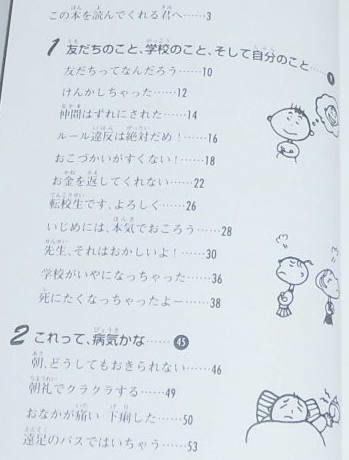 この本を読んでくれる君へ……3
1 友だちのこと、学校のこと、そして自分のこと……
友だちってなんだろう……10
けんかしちゃった……12
仲間はずれにされた……14
ルール違反は絶対だめ!……16
おこづかいがすくない!……18
お金を返してくれない……22
転校生です、よろしく……26
いじめには、本気でおころう……28
先生、それはおかしいよ!……30
学校がいやになっちゃった……36
死にたくなっちゃったよー……38
2 これって、病気かな……45
朝、どうしてもおきられない……46
朝礼でクラクラする……49
おなかが痛い 下痢した……50
遠足のバスではいちゃう……53